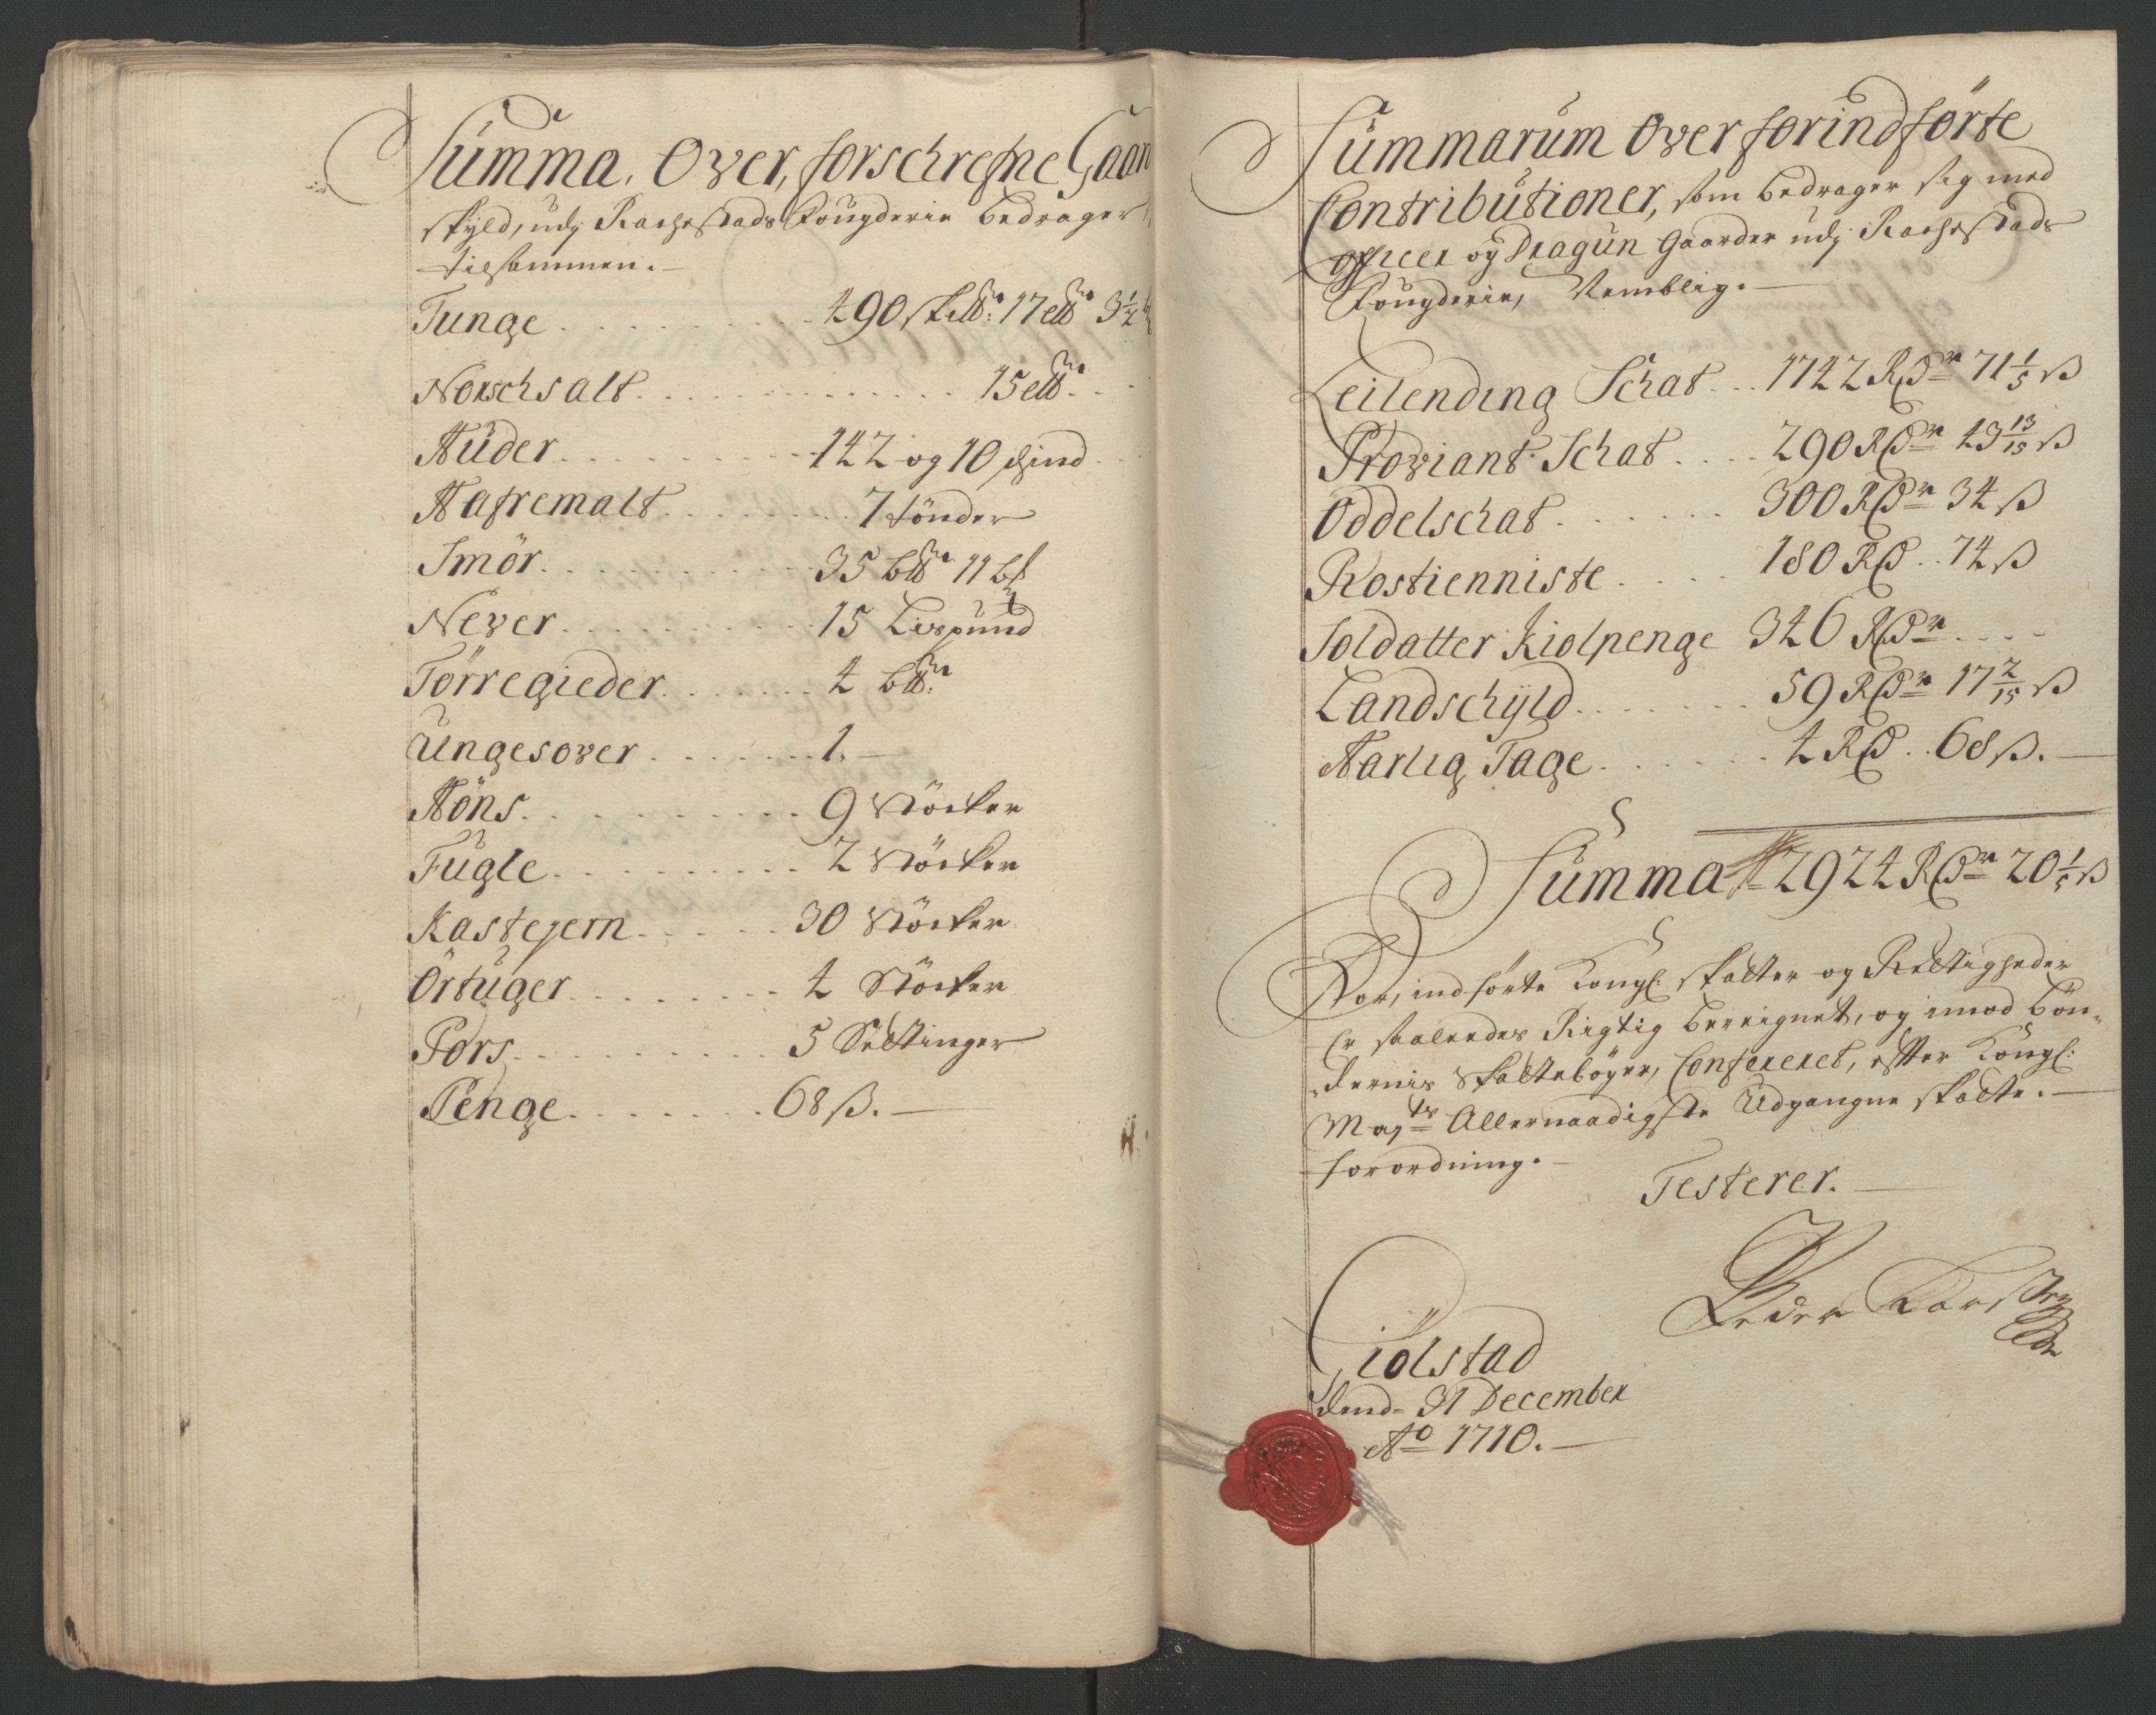 Summa, Over, forschrefne Gaar
skyld, udj Rachestads Fougderie bedrager
tilsammen.
Tunge . . . . . . . . . 490 sk℔: 17 l℔ 3½
Norschsalt . . . . . . . . . . . . . 15 l℔ . .
Huder . . . . . . . . . 142 og 10 skind
Hafremalt . . . . . . . 7 tönder
Smör . . . . . . . . . 35 b℔ 11
Never . . . . . . . . . 15 Lispund
Törregieder . . . . . . 4 b℔:
Ungesover . . . . . . . 1. —
Höns . . . . . . . . . . 9 Stöcker
Fugle . . . . . . . . . 2 Stöcker
Kastejern . . . . . 30 Stöcker
Örtuger . . . . . . . . 4 Stöcker
Pors . . . . . . . . . . 5 Settinger
Penge . . . . . . . 68 ß. —
Summarum Over forindförte
Contributioner, som bedrager sig med
officer og Dragun Gaarder udj Rachestads
Fougderie, Nemblig. —
Leilending Schat . . . 1742 Rdr 71 1/5 ß
Proviant Schat . . . . 290 Rdr 43 13/15 ß
Oddelschat . . . . . . . 300 Rdr 34 ß
Rostienniste . . . . . 180 Rd . . 74 ß
Soldatter Kiolpenge 346 Rdr . . . .
Landschyld . . . . . . . 59 Rdr 17 2/15 ß
Aarlig Tage . . . . . . . 4 Rd . . 68 ß. —
Summa 2924 Rdr 20 1/5 ß
For, indförte Kongl: skatter og Rettigheder
Er saaledes Rigtig beregnet, og imod bön-
dernis Skattebøger, Confereret, efter Kongl:
Maytz Allernaadigste Udgangne skatte. —
forordning. —
Testerer. —
Peder
Giölstad
dend= 31 December
Ao 1710. —